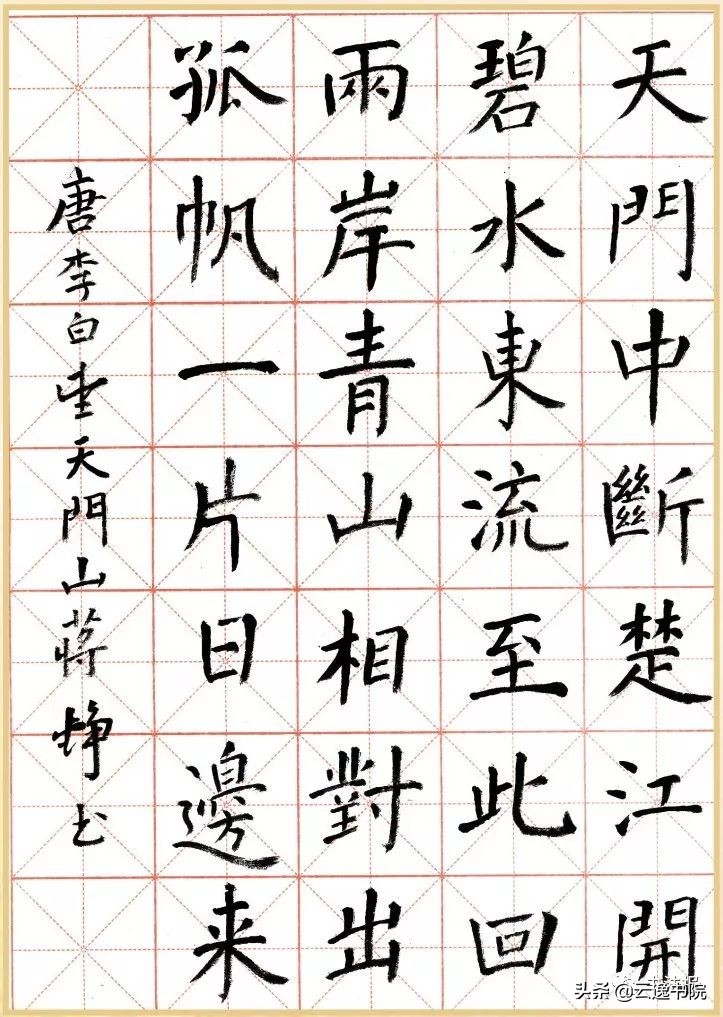 天門中斷楚江開
碧水東流至此回
兩岸青山相對出
孤帆一片日邊来
唐李白望天門山蔣錚书
头条@云逸书院